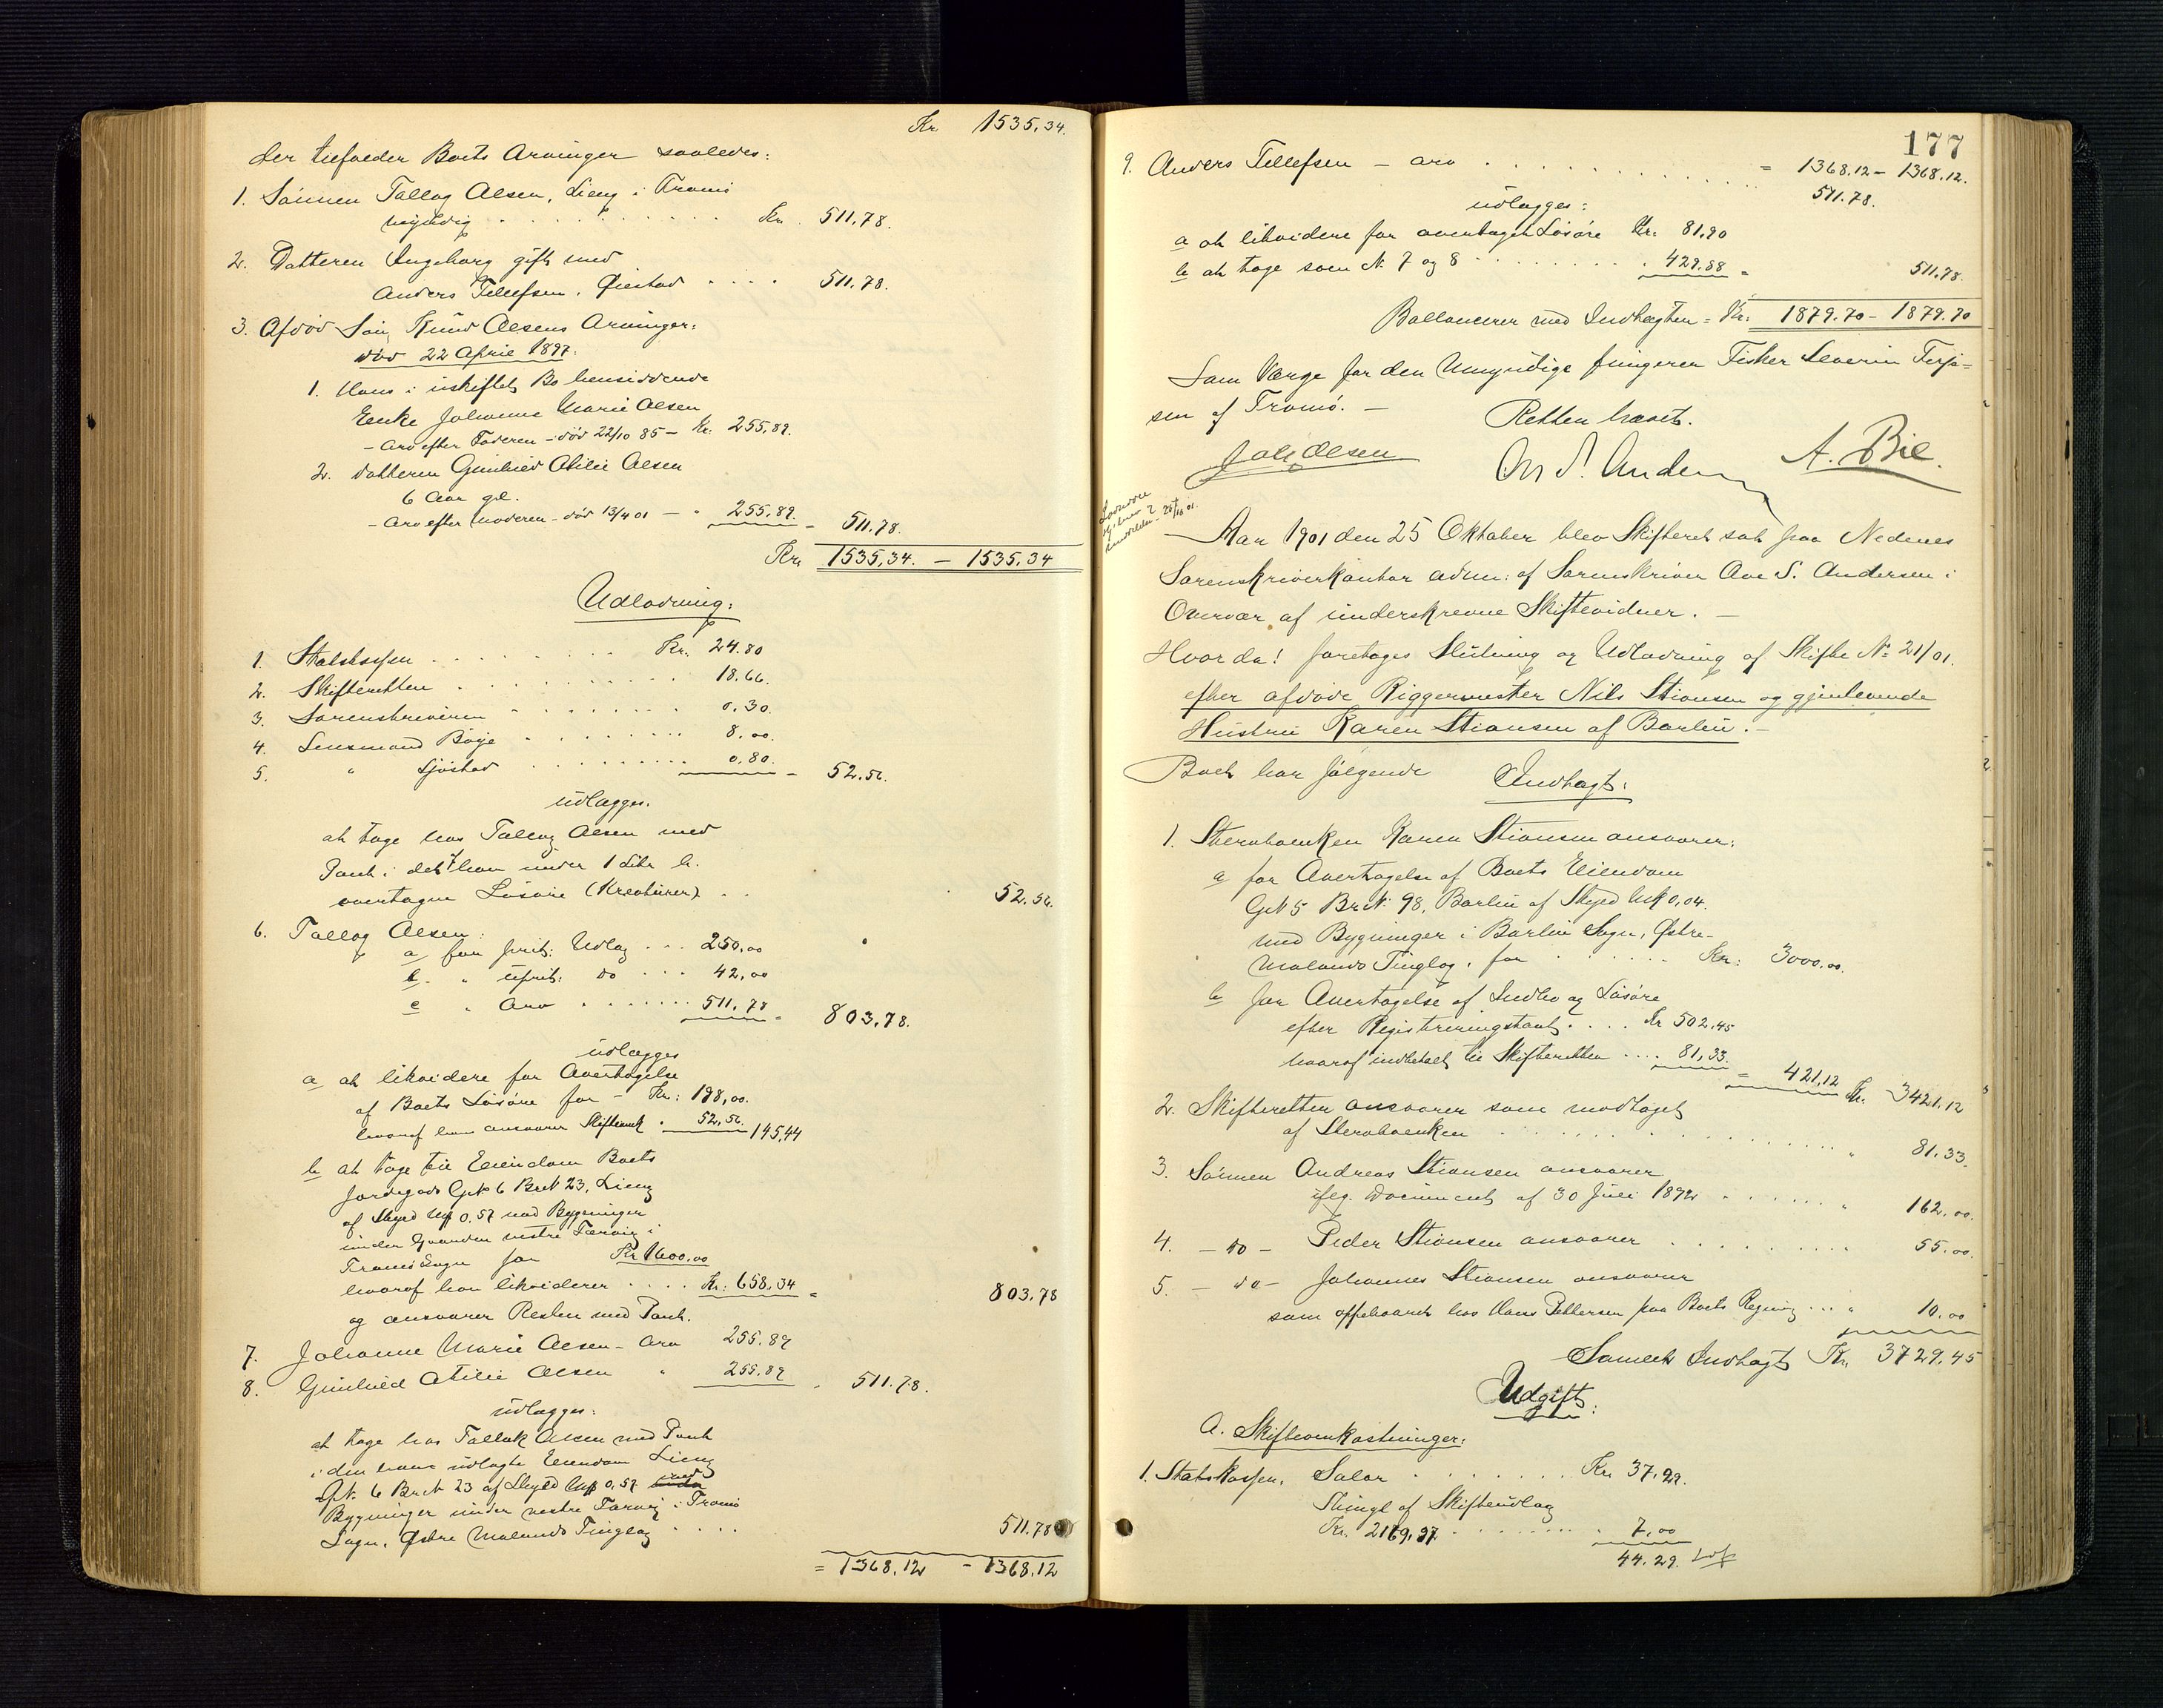 Kr. 1535,34.
der tilfalder Boets Arvinger saaledes:
1. Sønnen Tallog Olsen, Lieng i Tromø
myndig . . . . . Kr. 511,78.
2. Datteren Ingeborg gift med
Anders Tellefsen, Øiestad . . . . 511,78.
3. Afdød Søn, Knud Olsens Arvinger:
død 22 April 1897.
1. Hans i uskiftet Bo hensiddende
Enke Johanne Marie Olsen
- Arv efter Faderen - død 22/10 85 - Kr. 255,89.
2. Datteren Gunhild Otilie Olsen
6 Aar gl.
- Arv efter Moderen - død 13/4 01 - " 255.89. - 511.78.
Kr. 1535,34. - 1535,34
Udlodning:
1. Statskassen . . . . . Kr. 24.80
2. Skifteretten . . . . . 18.66.
3. Sorenskriveren . . . . . 0.30.
4. Lensmand Bøje . . . . . 8.00.
5. " Sjøstad . . . . . 0.80. - 52.56.
udlægges.
at tage hos Tallog Olsen med
Pant i det af ham under 1 Litr b.
overtagne Løsøre (Kreaturer) . . 52.56.
6. Tallog Olsen:
a for prit: Udlæg . . . 250,00
b. " uprit: do . . . 42,00
c " Arv . . . . . 511,78 = 803,78.
udlægges
a at likvidere for Overtagelse
af Boets Løsøre for - Kr: 198,00.
hvoraf han ansvarer Skifteomk. 52,56. 145,44
b at tage til Eiendom Boets
Jordegods Gr.№ 6 Br.№ 23, Lieng
af Skyld Mk 0.57 med Bygninger
under Gaarden vestre Færvig i
Tromø Sogn for Kr 1600.00
hvoraf han likviderer . . . . Kr: 658,34 = 803.78
og ansvarer Resten med Pant.
7. Johanne Marie Olsen - Arv 255.89
8. Gunhild Otilie Olsen " 255.89 - 511.78.
udlægges:
at tage hos Tallak Olsen med Pant
i den ham udlagte Eiendom Lieng
G.№ 6 Br.№ 23 af Skyld Mk 0,57 med
Bygninger under vestre Færvig i Tromø
Sogn, Østre Molands Tinglag . . . . 511.78
= 1368,12 - 1368.12
177
9. Anders Tellefsen - Arv . . . . . = 1368.12 - 1368.12.
511.78.
udlægges:
a at likvidere for overtaget Løsøre Kr. 81,90
b at tage som № 7 og 8 . . . . . 429.88 = 511.78.
Ballancerer med Indtægten = Kr: 1879.70 - 1879.70
Som Værge for den Umyndige fungerer Fisker Severin Terje-
sen af Tromø. -
Retten hævet.
Joh Olsen
Ov S. Andersen
A. Bie.
Aar 1901 den 25 Oktober blev Skifteret sat paa Nedenes
Sorenskriverkontor adm: af Sorenskriver Ove S. Andersen i
Overvær af underskrevne Skiftevidner. -
Hvorda! foretoges Slutning og Udlodning af Skifte № 21/01.
efter afdøde Riggermester Nils Stiansen og gjenlevende
Hustru Karen Stiansen af Barbu. -
Boet har følgende
Indtægt:
1. Stervboenken Karen Stiansen ansvarer:
a for Overtagelse af Boets Eiendom
G№ 5 Br.№ 98, Barbu af Skyld Mk 0,04.
med Bygninger i Barbu Sogn, Østre-
Molands Tinglag, for . . . . . Kr: 3000,00.
b for Overtagelse af Indbo og Løsøre
efter Registreringstaxt . . . . Kr 502,45
hvoraf indbetalt til Skifteretten . . . . 81,33.
= 421,12 Kr. 3421,12
2. Skifteretten ansvarer som modtaget
af Stervboenken . . . . . " 81.33.
3. Sønnen Andreas Stiansen ansvarer
ifølg. Document af 30 Juli 1892 . . . . . " 162.00.
4. - do - Peder Stiansen ansvarer . . . . . 55.00.
5. - do - Johannes Stiansen ansvarer
som oppebaaret hos Hans Pettersen paa Boets Regning . . . " 10.00
Samlet Indtægt Kr. 3729,45
Udgift:
A. Skifteomkostninger:
1. Statskassen, Salar . . . . . Kr. 37,29.
Stempl af Skifteudlæg
Kr. 2169,37 . . . . . 7,00
44.29.